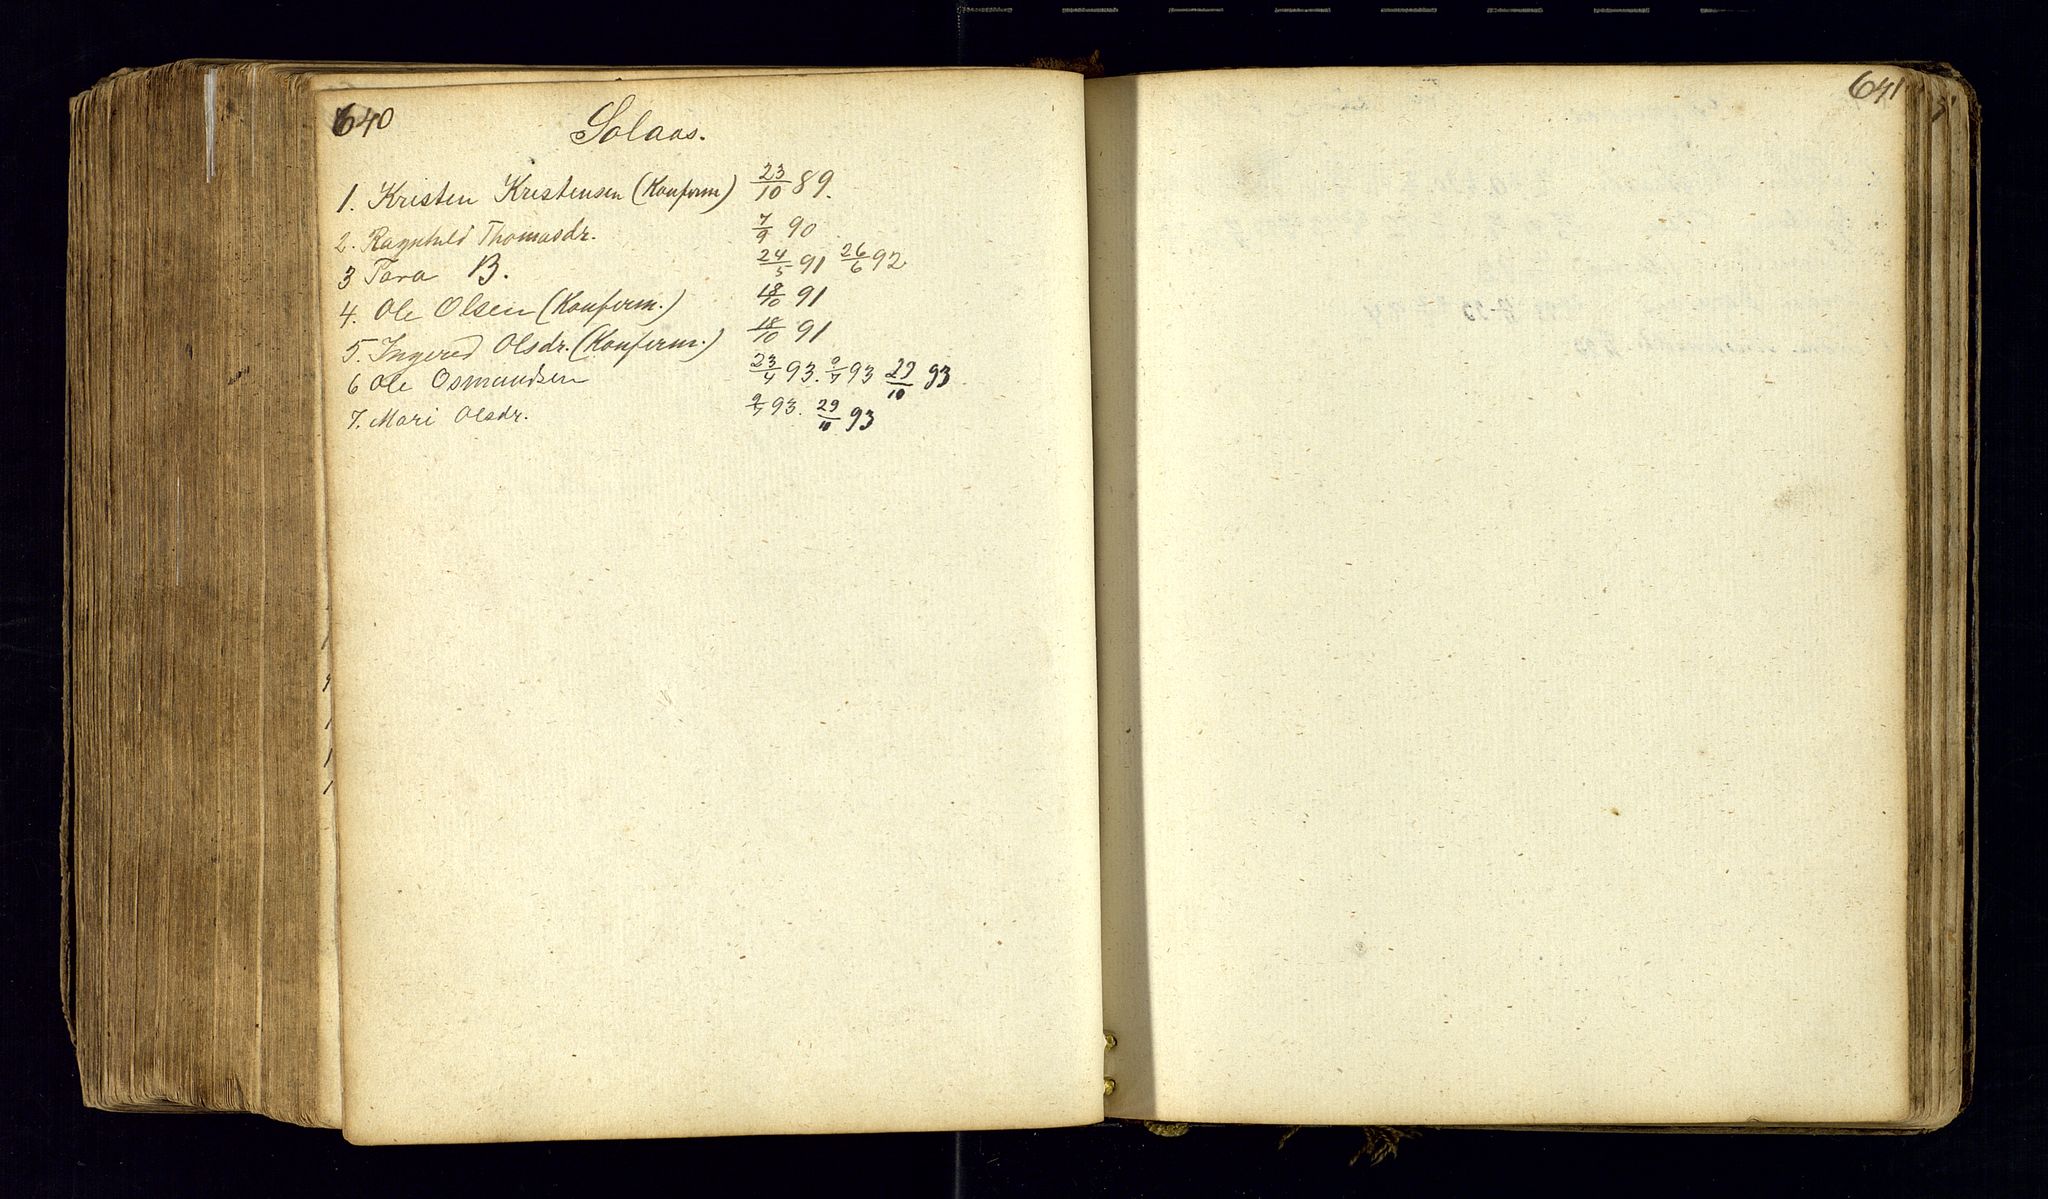 640
Solaas.
1. Kristen Kristensen (Konfirm) 23/10 89.
2. Ragnhild Thomasdr. 7/9 90
3 Tora B. 24/5 91 26/6 92
4. Ole Olsen (Konfirm.) 18/10 91
5. Ingered Olsdr. (Konfirm.) 18/10 91
6 Ole Osmundsen 23/4 93. 9/7 93 29/10 93
7. Mari Olsdr. 9/7 93. 29/10 93
641